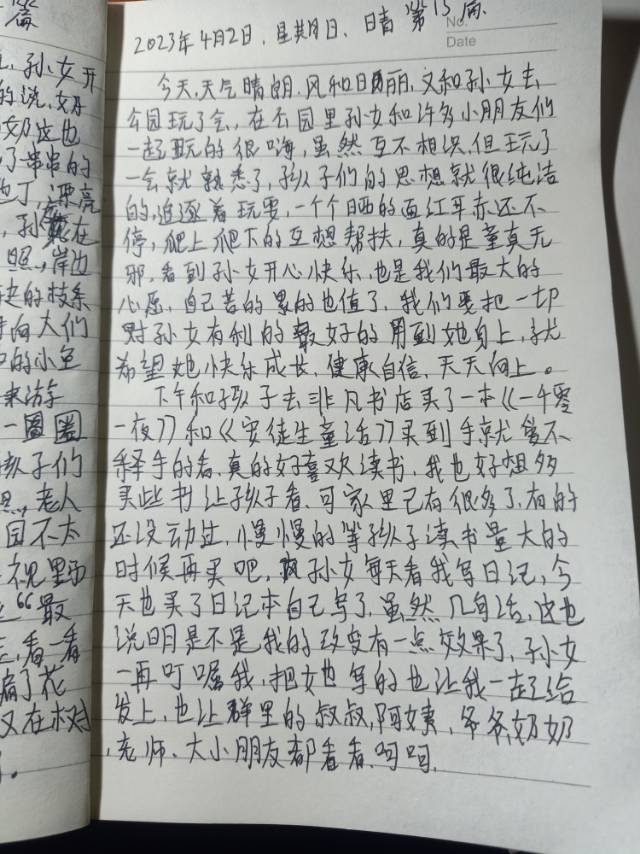 篇
孙女开
的说,奶
奶这也
了一串串的
漂亮
在
照,岸边
的枝条
向大们
的小鱼
来游
一圈圈
孩子们
老人
回不太
视野
“最
看一看
了花
又在树
No.
Date
2023年4月2日.星期日.晴 第13篇.
今天,天气晴朗.风和日丽.又和孙女去
公园玩了会,在公园里孙女和许多小朋友们
一起玩的很嗨,虽然互不相识.但玩了
一会就熟悉了,孩子们的思想就很纯洁
的,追逐着玩耍,一个个晒的面红耳赤还不
停,爬上爬下的互想帮扶,真的是童真无
邪,看到孙女开心快乐.也是我们最大的
心愿,自己苦的累的也值了,我们要把一切
对孙女有利的最好的用到她身上,就
希望她快乐成长,健康自信,天天向上。
下午和孩子去非凡书店买了一本《一千零
一夜》和《安徒生童话》买到手就爱不
释手的看.真的好喜欢读书.我也好想多
买些书让孩子看.可家里已有很多了,有的
还没动过,慢慢的等孩子读书量大的
时候再买吧,孙女每天看我写日记,今
天也买了日记本自己写了,虽然几句话,这也
说明是不是我的改变有一点效果了,孙女
一再叮嘱我,把她写的也让我一起给
发上,也让群里的叔叔,阿姨,爷爷,奶奶
,老师、大小朋友都看看.呵呵.